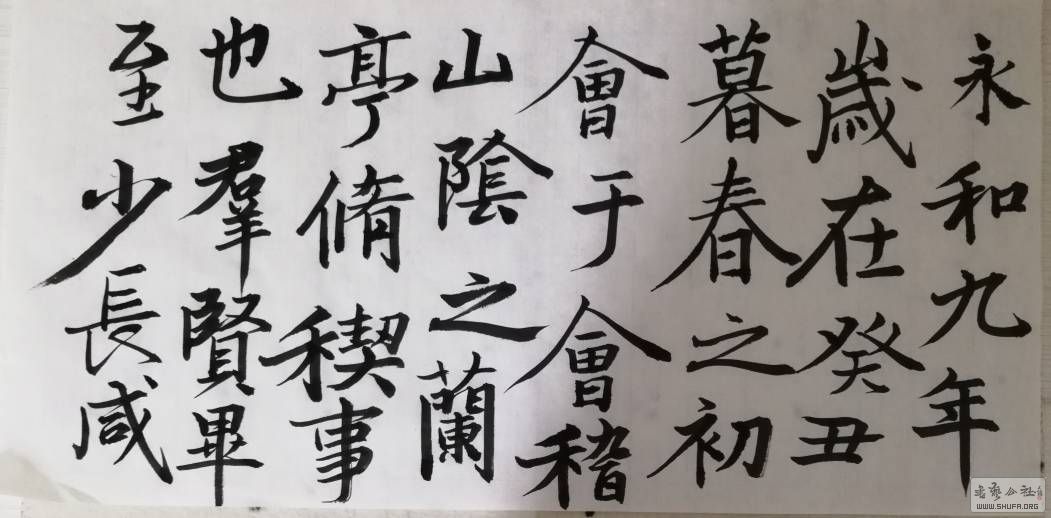 永和九年
歲在癸丑
暮春之初
會于會稽
山陰之蘭
亭脩稧事
也羣賢畢
至少長咸
WWW.SHUFA.ORG